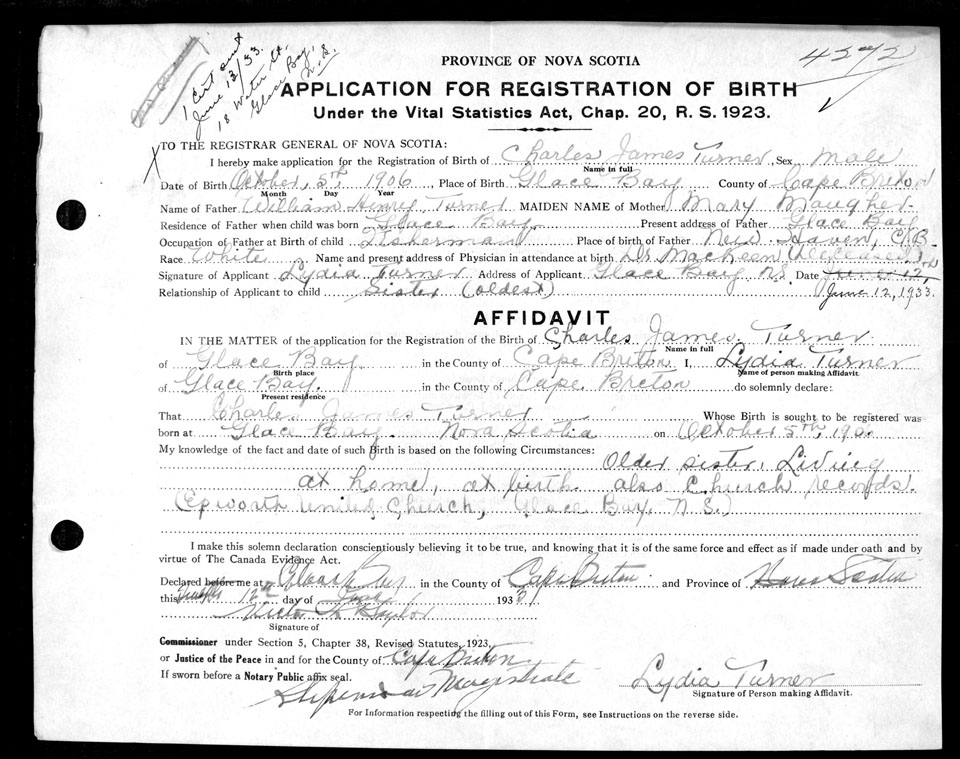 1 Cert sent
June 13/33.
18 Water St.
Glace Bay,
N.S.
4272
PROVINCE OF NOVA SCOTIA
APPLICATION FOR REGISTRATION OF BIRTH
Under the Vital Statistics Act, Chap. 20, R. S. 1923.
TO THE REGISTRAR GENERAL OF NOVA SCOTIA:
I hereby make application for the Registration of Birth of Charles James Turner, Sex Male
Name in full
Date of Birth October, 5th 1906, Place of Birth Glace Bay County of Cape Briton
Month Day Year
Name of Father William Henry Turner MAIDEN NAME of Mother Mary Maugher
Residence of Father when child was born Glace Bay. Present address of Father Glace Bay
Occupation of Father at Birth of child Fisherman Place of birth of Father New Haven, C.B.
Race White Name and present address of Physician in attendance at birth Dr. MacKeen (Deceased)
Signature of Applicant Lydia Turner Address of Applicant Glace Bay N.S. Date June 12,
Relationship of Applicant to child Sister (oldest) June 12, 1933.
AFFIDAVIT
IN THE MATTER of the application for the Registration of the Birth of Charles James Turner
Name in full
of Glace Bay in the County of Cape Briton I, Lydia Turner
Birth place Name of person making Affidavit.
of Glace Bay. in the County of Cape Breton do solemnly declare:
Present residence
That Charles James Turner Whose Birth is sought to be registered was
born at Glace Bay. Nova Scotia on October 5th, 1906
My knowledge of the fact and date of such Birth is based on the following Circumstances:
Older sister, Living
at home, at birth also Church records.
(Epworth United Church, Glace Bay. N.S.)
I make this solemn declaration conscientiously believing it to be true, and knowing that it is of the same force and effect as if made under oath and by
virtue of The Canada Evidence Act.
Declared before me at Glace Bay in the County of Cape Briton and Province of Nova Scotia
this 12th day of June 1933
Signature of
Commissioner under Section 5, Chapter 38, Revised Statutes, 1923,
or Justice of the Peace in and for the County of Cape Briton
If sworn before a Notary Public affix seal.
Stipendiary Magistrate
Lydia Turner
Signature of Person making Affidavit.
For Information respecting the filling out of this Form, see Instructions on the reverse side.